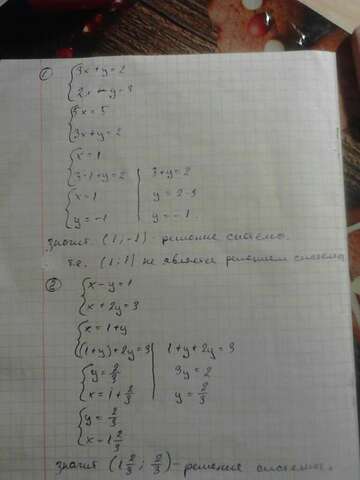 ① { 3x+y=2
2x-y=3
{ 5x=5
3x+y=2
{ x=1
3·1+y=2 | 3+y=2
{ x=1 | y=2-3
y=-1 | y=-1.
значит (1;-1) - решение системы.
т.е. (1;1) не является решением системы
② { x-y=1
x+2y=3
{ x=1+y
(1+y)+2y=3 | 1+y+2y=3
{ y=2/3 | 3y=2
x=1+2/3 | y=2/3
{ y=2/3
x=1 2/3
значит (1 2/3; 2/3) - решение системы.